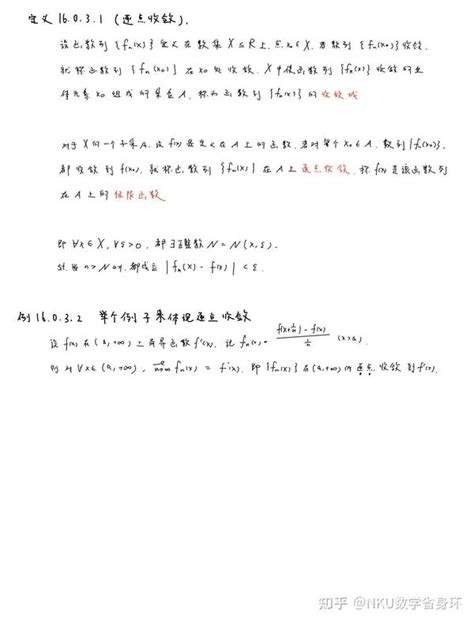 定义 16.0.3.1 (逐点收敛).
设函数列 {fₙ(x)} 定义在数集 X⊆R 上, 点 x₀∈X, 若数列 {fₙ(x₀)} 收敛,
就称函数列 {fₙ(x)} 在 x₀ 处收敛. X 中使函数列 {fₙ(x)} 收敛的全
体元素 x₀ 组成的集合 A, 称为函数列 {fₙ(x)} 的收敛域
对于 X 的一个子集 A, 设 f(x) 是定义在 A 上的函数, 若对每个 x₀∈A, 数列 {fₙ(x₀)},
都收敛到 f(x₀), 就称函数列 {fₙ(x)} 在 A 上逐点收敛, 称 f(x) 是该函数列
在 A 上的极限函数
即 ∀x∈X, ∀ε>0, 都∃正整数 N=N(x,ε).
st. 当 n>N 时, 都成立 |fₙ(x)-f(x)|<ε.
例 16.0.3.2 举个例子来体现逐点收敛
设 f(x) 在 (a,+∞) 上有导函数 f'(x), 记 fₙ(x)= (f(x+1/n)-f(x))/(1/n) (x>a)
则对 ∀x∈(a,+∞), lim n→∞ fₙ(x) = f'(x). 即 {fₙ(x)} 在 (a,+∞) 内逐点收敛到 f'(x).
知乎 @NKU数学省身环